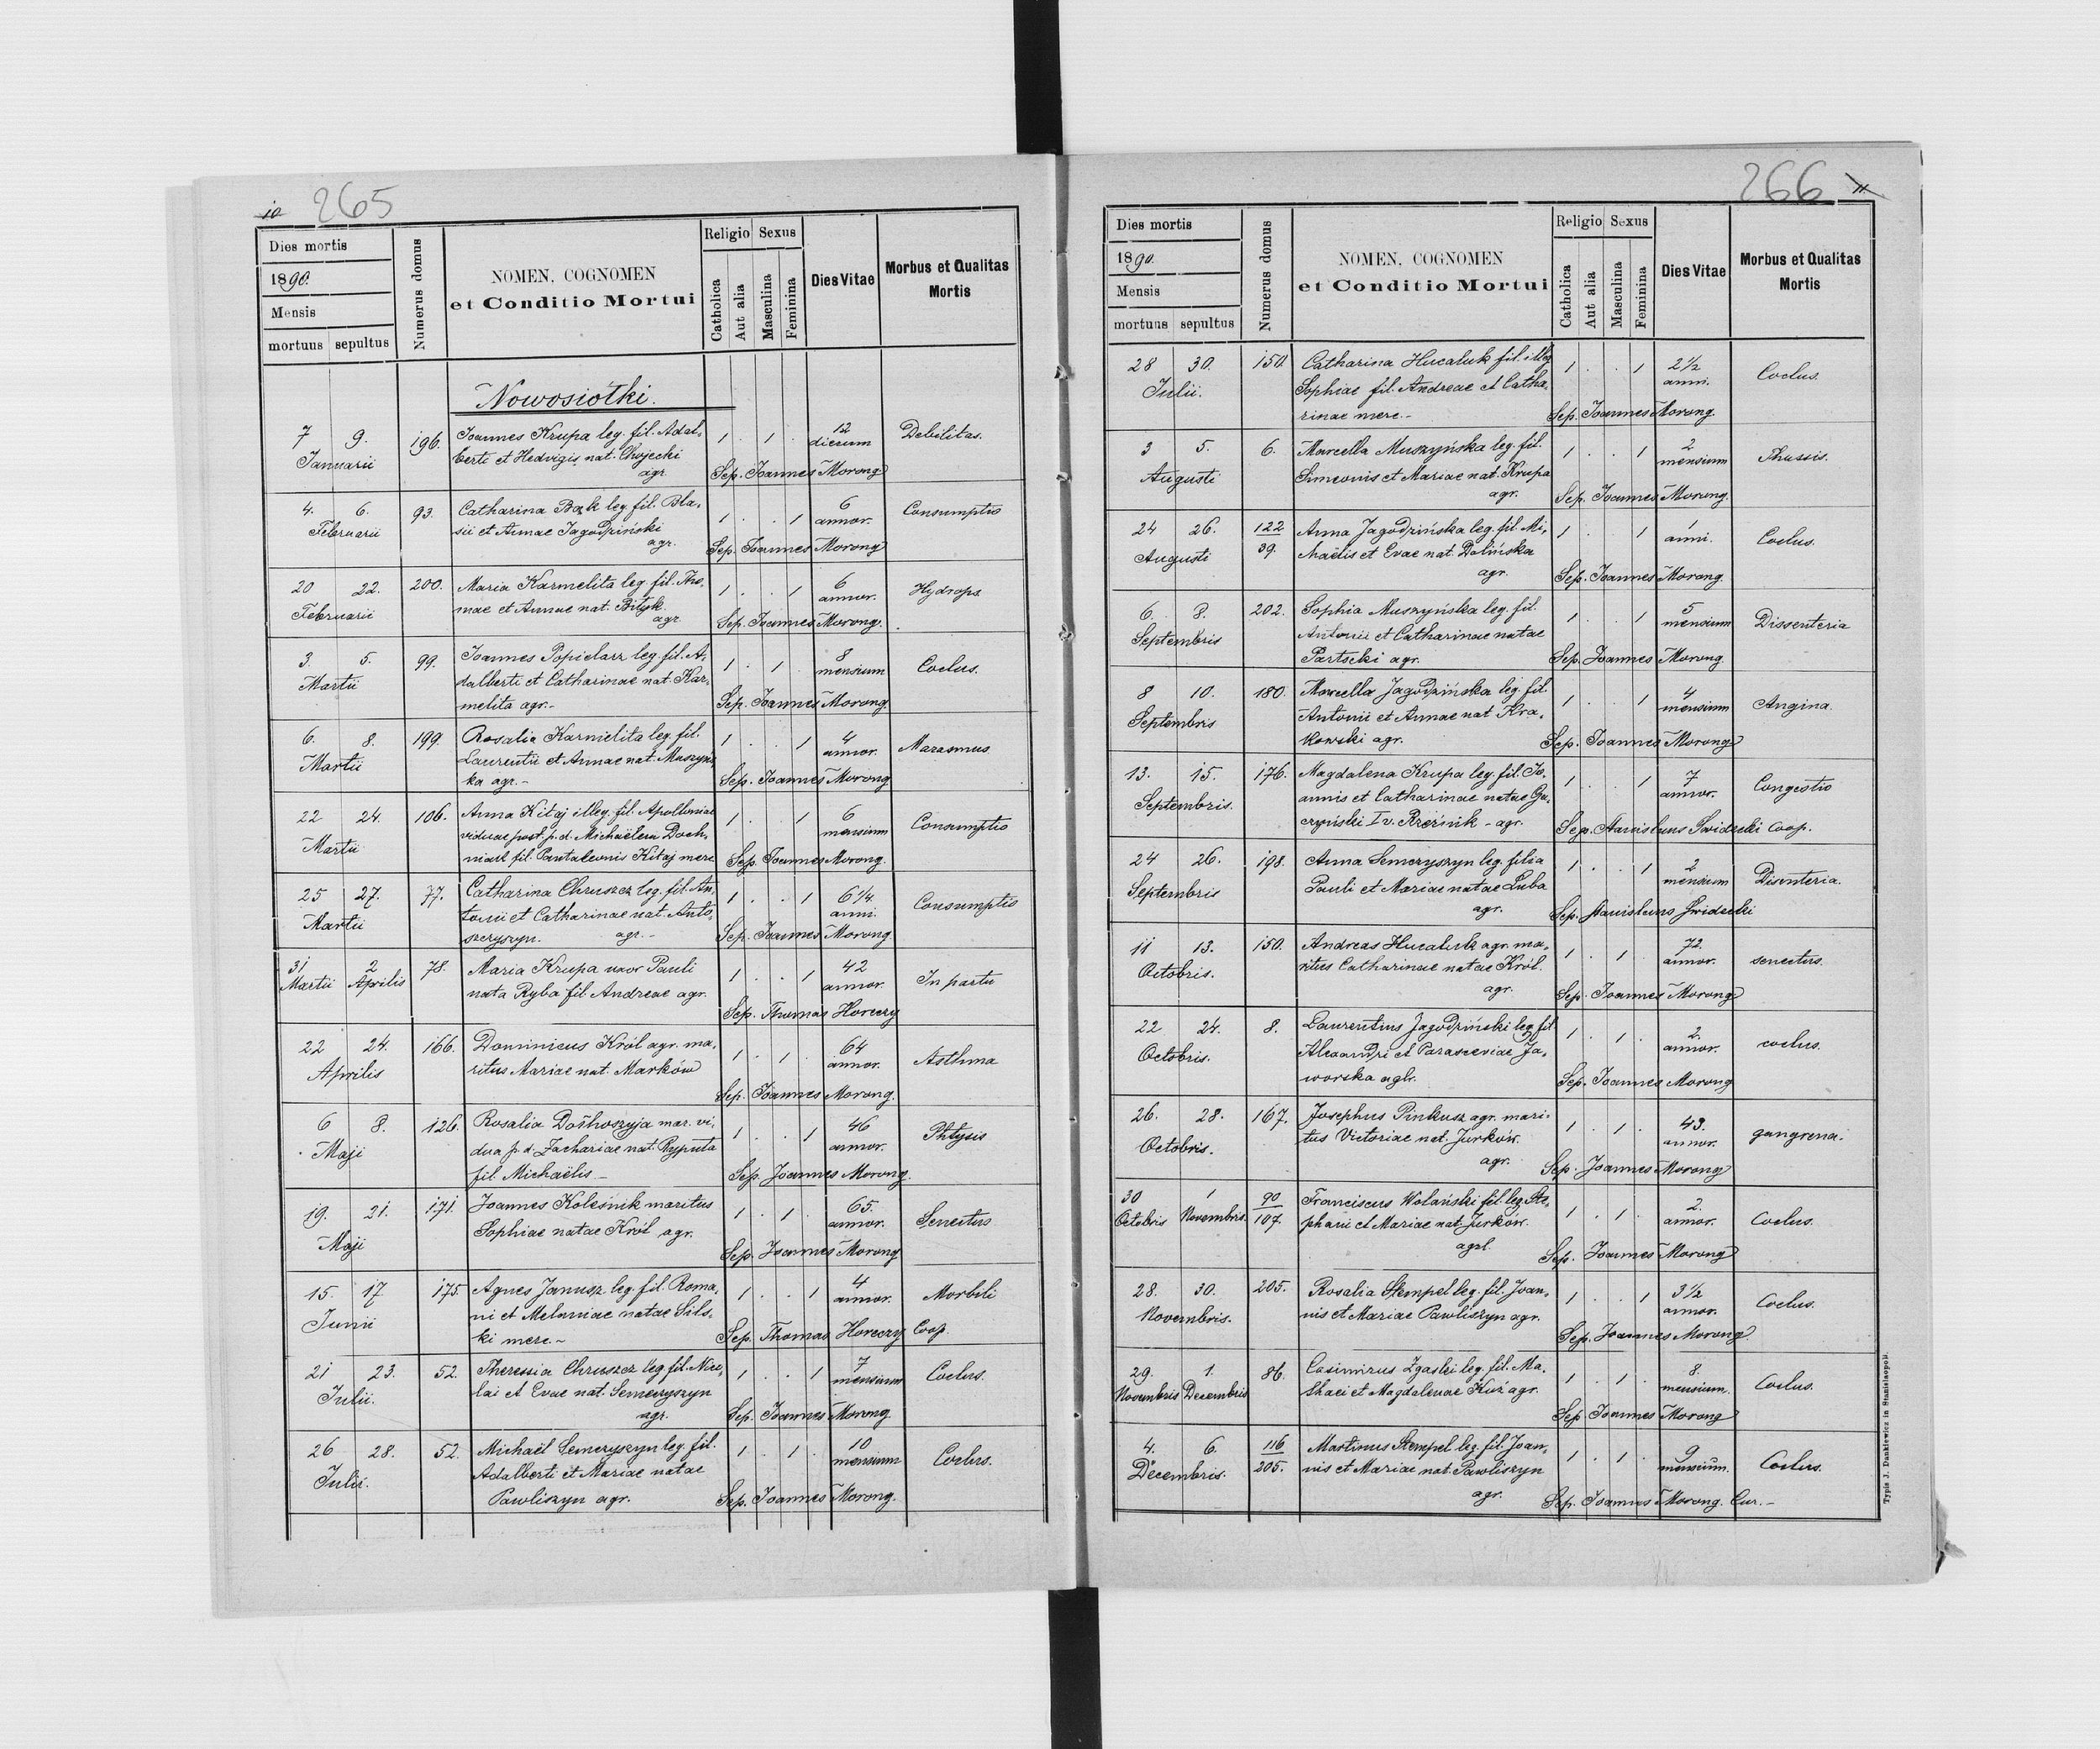 10 265
Dies mortis
1890.
Mensis
mortuus sepultus
Numerus domus
NOMEN, COGNOMEN
et Conditio Mortui
Religio Sexus
Catholica
Aut alia
Masculina
Feminina
Dies Vitae
Morbus et Qualitas
Mortis
Nowosiółki.
7 9. 196. Joannes Krupa leg. fil. Adal- 1 . 1 . 12 Debilitas.
Januarii berti et Hedvigis nat. Chojecki dierum
agr. Sep. Joannes Morong
4. 6. 93. Catharina Bąk leg. fil. Bla- 1 . . 1 6 Consumptio
Februarii sii et Annae Jagodziński annor.
agr. Sep. Joannes Morong
20 22. 200. Maria Karmelita leg. fil. Tho- 1 . . 1 6 Hydrops
Februarii mae et Annae nat. Bityk annor.
agr. Sep. Joannes Morong.
3. 5. 99. Joannes Popielarz leg. fil. A- 1 . 1 . 8 Coclus.
Martii dalberti et Catharinae nat. Kar- mensium
melita agr. - Sep. Joannes Morong.
6. 8. 199. Rosalia Karmelita leg. fil. 1 . . 1 4 Marasmus
Martii Laurentii et Annae nat. Muszyńs- annor.
ka agr. - Sep. Joannes Morong.
22 24. 106. Anna Kitaj illeg. fil. Apolloniae 1 . . 1 6 Consumptio
Martii viduae post. p. d. Michaëlem mensium
fil. Pantaleonis Kitaj merc. Sep. Joannes Morong.
25 27. 77. Catharina Chruszcz leg. fil. An- 1 . . 1 6 1/4 Consumptio
Martii tonii et Catharinae nat. Anto- anni.
szczyszyn. agr. - Sep. Joannes Morong
31 2 78. Maria Krupa uxor Pauli 1 . . 1 42 In partu
Martii Aprilis nata Ryba fil. Andreae agr. annor.
Sep. Thomas Horeczy
22 24. 166. Dominicus Król agr. ma- 1 . 1 . 64 Asthma
Aprilis ritus Mariae nat. Marków annor.
Sep. Joannes Morong.
6 8. 126. Rosalia mar. vi- 1 . . 1 46 Phtysis
Maji dua p. d. Zachariae nat. Ryputa annor.
fil. Michaëlis - Sep. Joannes Morong.
19. 21. 171. Joannes Koleśnik maritus 1 . 1 . 65. Senectus
Maji Sophiae natae Król agr. annor.
Sep. Joannes Morong
15. 17 175. Agnes Janusz leg. fil. Roma- 1 . . 1 4 Morbili
Junii ni et Melaniae natae Sils- annor.
ki merc. - Sep. Thomas Horeczy Coop.
21 23. 52. Theressia Chruszcz leg. fil. Nico- 1 . . 1 7 Coclus.
Julii. lai et Evae nat. Semczyszyn mensium
agr. Sep. Joannes Morong
26 28. 52. Michaël Semczyszyn leg. fil. 1 . 1 . 10 Coclus.
Julii. Adalberti et Mariae natae mensium
Pawliszyn agr. Sep. Joannes Morong.
266 11
Dies mortis
1890.
Mensis
mortuus sepultus
Numerus domus
NOMEN, COGNOMEN
et Conditio Mortui
Religio Sexus
Catholica
Aut alia
Masculina
Feminina
Dies Vitae
Morbus et Qualitas
Mortis
28 30. 150. Catharina Hucaluk fil. illeg. 1 . . 1 2 1/2 Coclus.
Julii. Sophiae fil. Andreae et Catha- anni.
rinae merc. - Sep. Joannes Morong.
3 5. 6. Marcella Muszyńska leg. fil. 1 . . 1 2 Thussis.
Augusti Simeonis et Mariae nat. Krupa mensium
agr. Sep. Joannes Morong.
24 26. 122 Anna Jagodzińska leg. fil. Mi- 1 . . 1 1 Coclus.
Augusti 39. chaëlis et Evae nat. Dolińska anni.
agr. Sep. Joannes Morong.
6. 8. 202. Sophia Muszyńska leg. fil. 1 . . 1 5 Dissenteria
Septembris Antonii et Catharinae natae mensium
Partscki agr. Sep. Joannes Morong.
8 10. 180. Marcella Jagodzińska leg. fil. 1 . . 1 4 Angina.
Septembris Antonii et Annae nat. Kra- mensium
kowski agr. Sep. Joannes Morong
13. 15. 176. Magdalena Krupa leg. fil. Jo- 1 . . 1 7 Congestio
Septembris. annis et Catharinae natae Ga- annor.
czyński I v. Rzeźnik - agr. Sep. Stanislaus Swiderki Coop.
24 26. 198. Anna Semczyszyn leg. filia 1 . . 1 2 Disenteria.
Septembris Pauli et Mariae natae Luba mensium
agr. Sep. Stanislaus Swiderki
11 13. 150. Andreas Hucaluk agr. ma- 1 . 1 . 72. senectus.
Octobris. ritus Catharinae natae Król. annor.
agr. Sep. Joannes Morong
22 24. 8. Laurentius Jagodziński leg. fil. 1 . 1 . 2. coclus.
Octobris. Alexandri et Parasceviae Ja- annor.
worska agr. Sep. Joannes Morong
26. 28. 167. Josephus Pinkusz agr. mari- 1 . 1 . 43. gangrena.
Octobris. tus Victoriae nat. Jurków. annor.
agr. Sep. Joannes Morong
30 1 90 Franciscus Wolański fil. leg. Ste- 1 . 1 . 2. Coclus.
Octobris Novembris. 107. phani et Mariae nat. Jurków. annor.
agr. Sep. Joannes Morong
28. 30. 205. Rosalia Stempel leg. fil. Joan- 1 . . 1 3 1/2 Coclus.
Novembris. nis et Mariae Pawliszyn agr. annor.
Sep. Joannes Morong
29. 1. 86. Casimirus Zgaski leg. fil. Ma- 1 . 1 . 8. Coclus.
Novembris Decembris thaei et Magdalenae Kuś agr. mensium.
Sep. Joannes Morong
4. 6. 116 Martinus Stempel leg. fil. Joan- 1 . 1 . 9 Coclus.
Decembris. 205. nis et Mariae nat. Pawliszyn mensium.
agr. Sep. Joannes Morong. Cur. -
Typis J. Dankiewicz in Stanislaopoli.